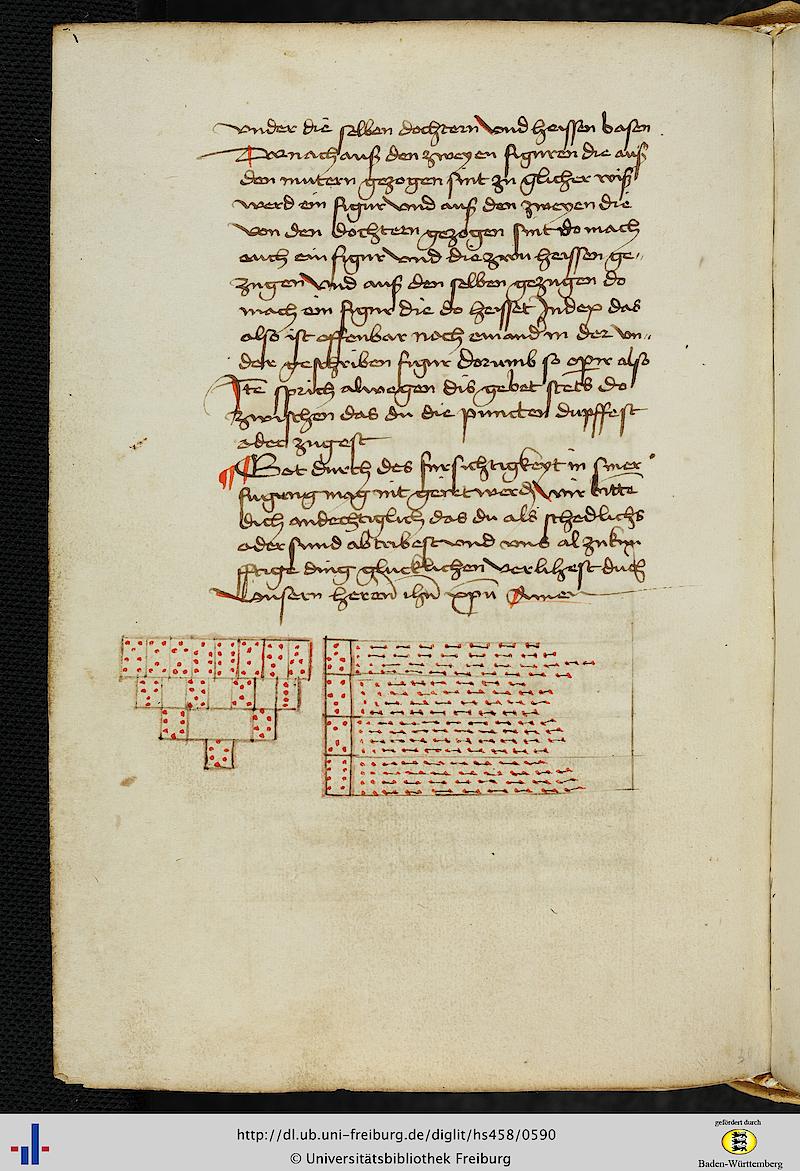 vnder die selben dochtern vnd heissen basen
Dornach auß den zweyen figuren die auß
den mutern gezogen sint zu glicher wiß
werd ein figur vnd auß den zweyen die
von den dochtern gezogen sint do mach
auch ein figur vnd die zwu heissen ge„
zugen vnd auß den selben gezugen do
mach ein figur die do heisset Index das
also ist offenbar noch einand in der vn„
der geschriben figur dorumb so also
Ite sprich alwegen dis gebet stets do
zwischen das du die puncten dupffest
oder zugest
Got durch des fursichtigkeyt in siner
fugung mag nit geiret werd wir bitte
dich andechtiglich das du als schedlichs
oder sund abtribest vnd vns al zukun
fftige ding glucklichen verlihest durch
vnsern heren ihu xpu Amen
http://dl.ub.uni-freiburg.de/diglit/hs458/0590
© Universitätsbibliothek Freiburg
gefördert durch
Baden-Württemberg